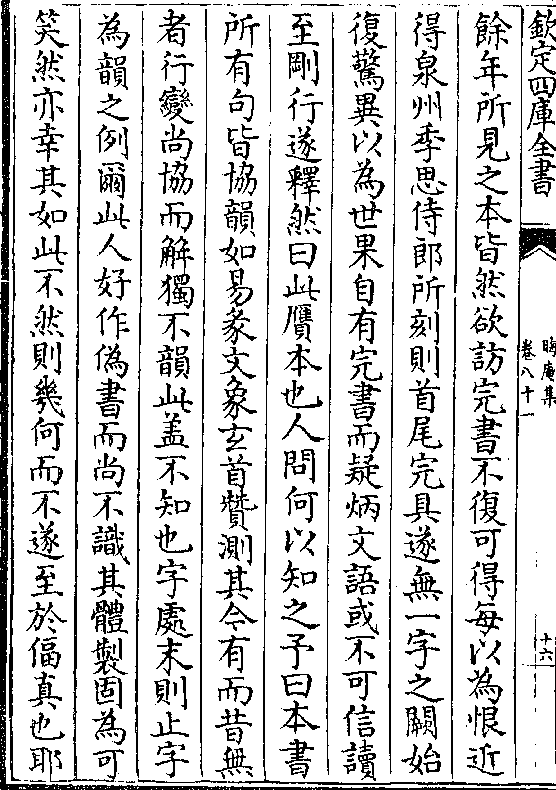 欽定四庫全書
晦庵集
卷八十一
十六
餘年所見之本皆然欲訪完書不復可得每以為恨近
得泉州季思侍郎所刻則首尾完具遂無一字之闕始
復驚異以為世果自有完書而疑炳文語或不可信讀
至剛行遂釋然曰此贋本也人問何以知之予曰本書
所有句皆協韻如易彖文象玄首贊測其今有而昔無
者行變尚協而解獨不韻此盖不知也字處末則止字
為韻之例爾此人好作偽書而尚不識其體製固為可
笑然亦幸其如此不然則幾何而不遂至於偪真也耶